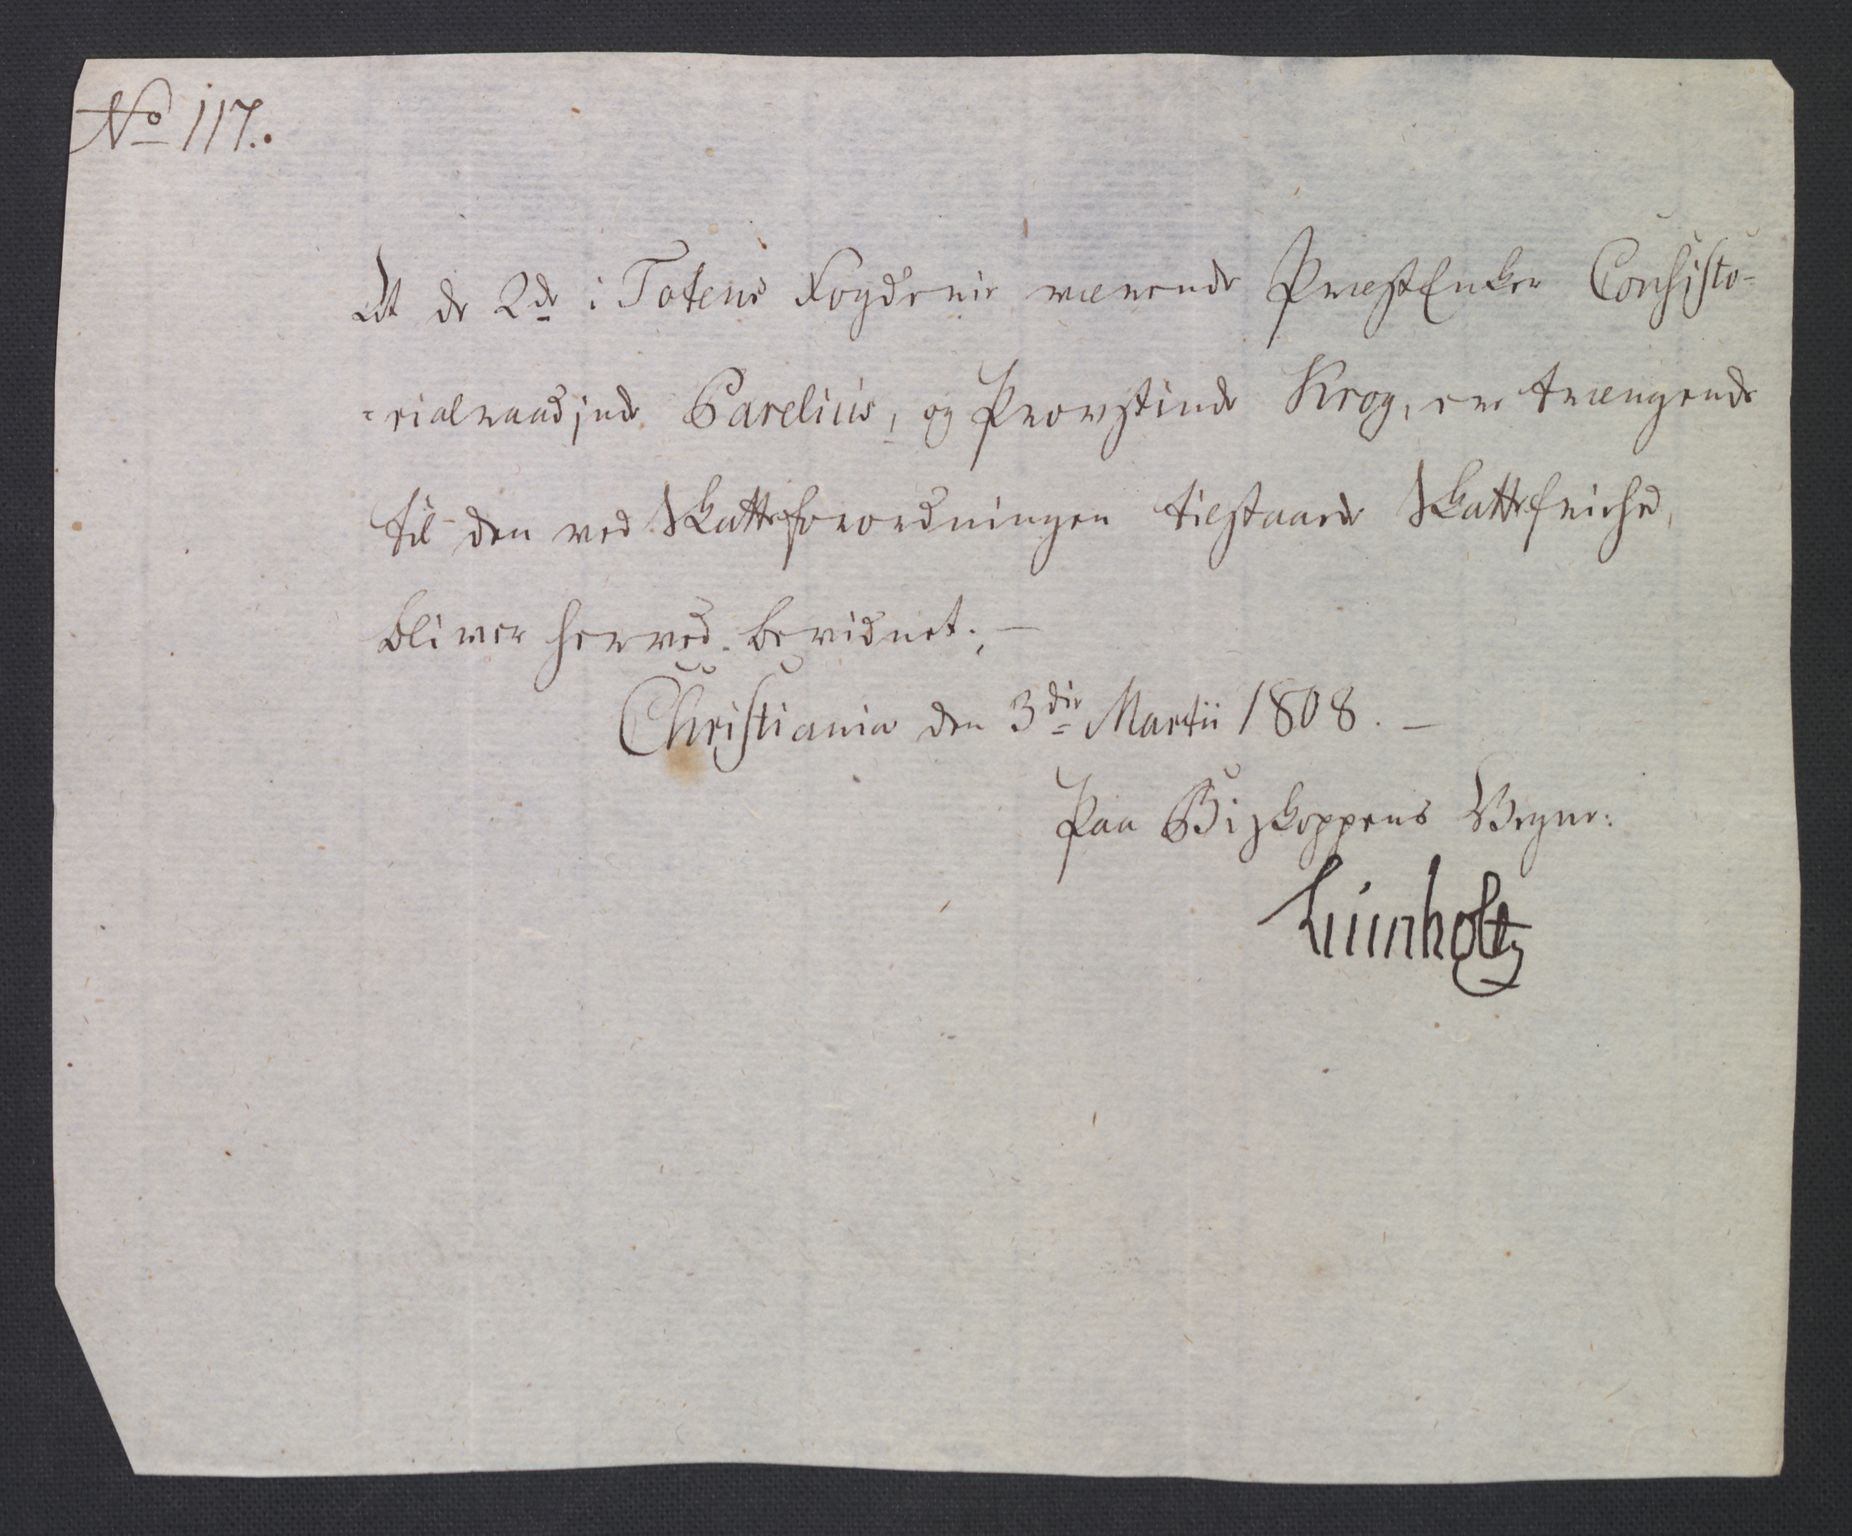 No 117.
At de 2de i Totens Fogderie værende PræstEnker Consisto-
-rialraadinde Parelius, og Provstinde Krog, ere trængende
til den ved Skatteforordningen tilstaaede Skattefriehed,
bliver herved bevidnet. -
Christiania den 3die Martii 1808. -
Paa Biskoppens Vegne:
Lumholtz